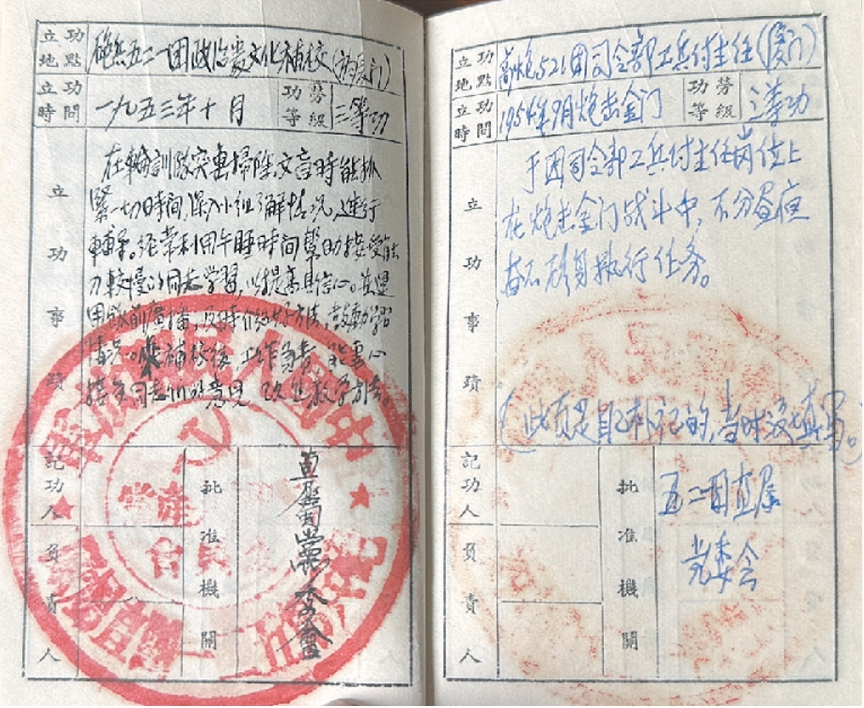 立功地點 砲兵五二一团政治處文化補校(於厦门)
立功時間 一九五三年十月 功勞等級 三等功
立功事蹟
在輪訓隊突击掃除文盲時能抓
緊一切時間,深入小組了解情况,進行
輔导。经常利用午睡時間幫助接受能
力較慢的同志学習,以提高其信心。並運
用队前廣播,及時介绍好方法,鼓動学習
情况。來補校後工作負責
接受同志们的意見 改进教学方法。
記功人負責人
批准機關
直屬黨委會
立功地點 521团司令部工兵付主任(厦门)
立功時間 1954年9月炮击金门 功勞等級 三等功
立功事蹟
于团司令部工兵付主任岗位上
在炮击金门战斗中,不分昼夜
奋不顾身执行任务。
(此页是自己补记的,当时没有填写。)
記功人負責人
批准機關
五二一团直属
党委会